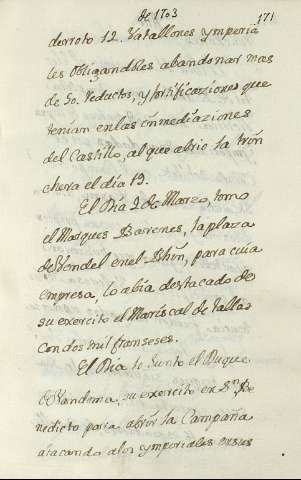 de 1703
171
derroto 12. Vatallones ymperia
les obligandoles abandonar mas
de 50. Reductos, y fortificaziones que
tenian en las inmediaziones
del Castillo, al que abrio la trin
chera el dia 19.
El Dia 2 de Marzo, tomo
el Marques Barenes, la plaza
de Vendel en el Rhin, para cuia
empresa, lo abia destacado de
su exercito el Mariscal de Talla
con dos mil franseses.
El Dia 10 Junto el Duque
de Vandoma, su exercito en Sn. Be
nedicto para abrir la Campaña
atacando alos ymperiales en sus